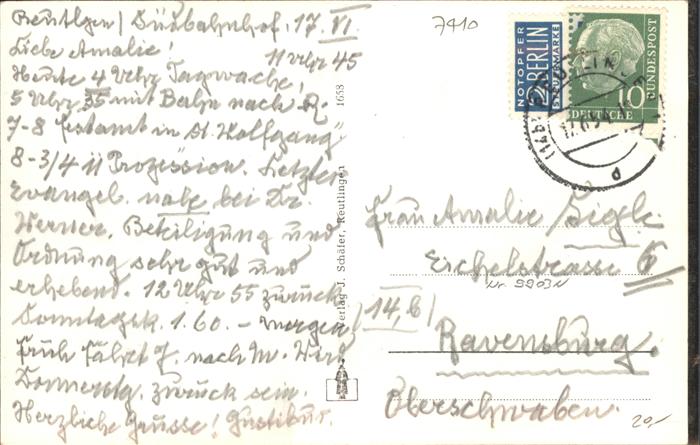 7410
Reutlgen/ Südbahnhof. 17. VI.
Liebe Amalie! 11 Uhr 45
Heute 4 Uhr Tagwache!
5 Uhr 35 mit Bahn nach R.
7-8 Festamt in St. Wolfgang"
8-3/4 11 Prozession. Letztes
Evangel. nahe bei Dr.
Werner. Beteiligung und
Ordnung sehr gut und
erhebend. 12 Uhr 55 zurück
Sonntagsk. 1.60. – morgen
früh fährt J. nach M. Wird
Donnerstg. zurück sein.
Herzliche Grüsse! Gustibus.
Verlag J. Schäfer, Reutlingen 1658
NOTOPFER
2 BERLIN
STEUERMARKE
10
DEUTSCHE
BUNDESPOST
Frau Amalie Sigle.
Eschelstrasse 6
Nr. 9903N
/14,b/
Ravensburg.
Oberschwaben.
20,-